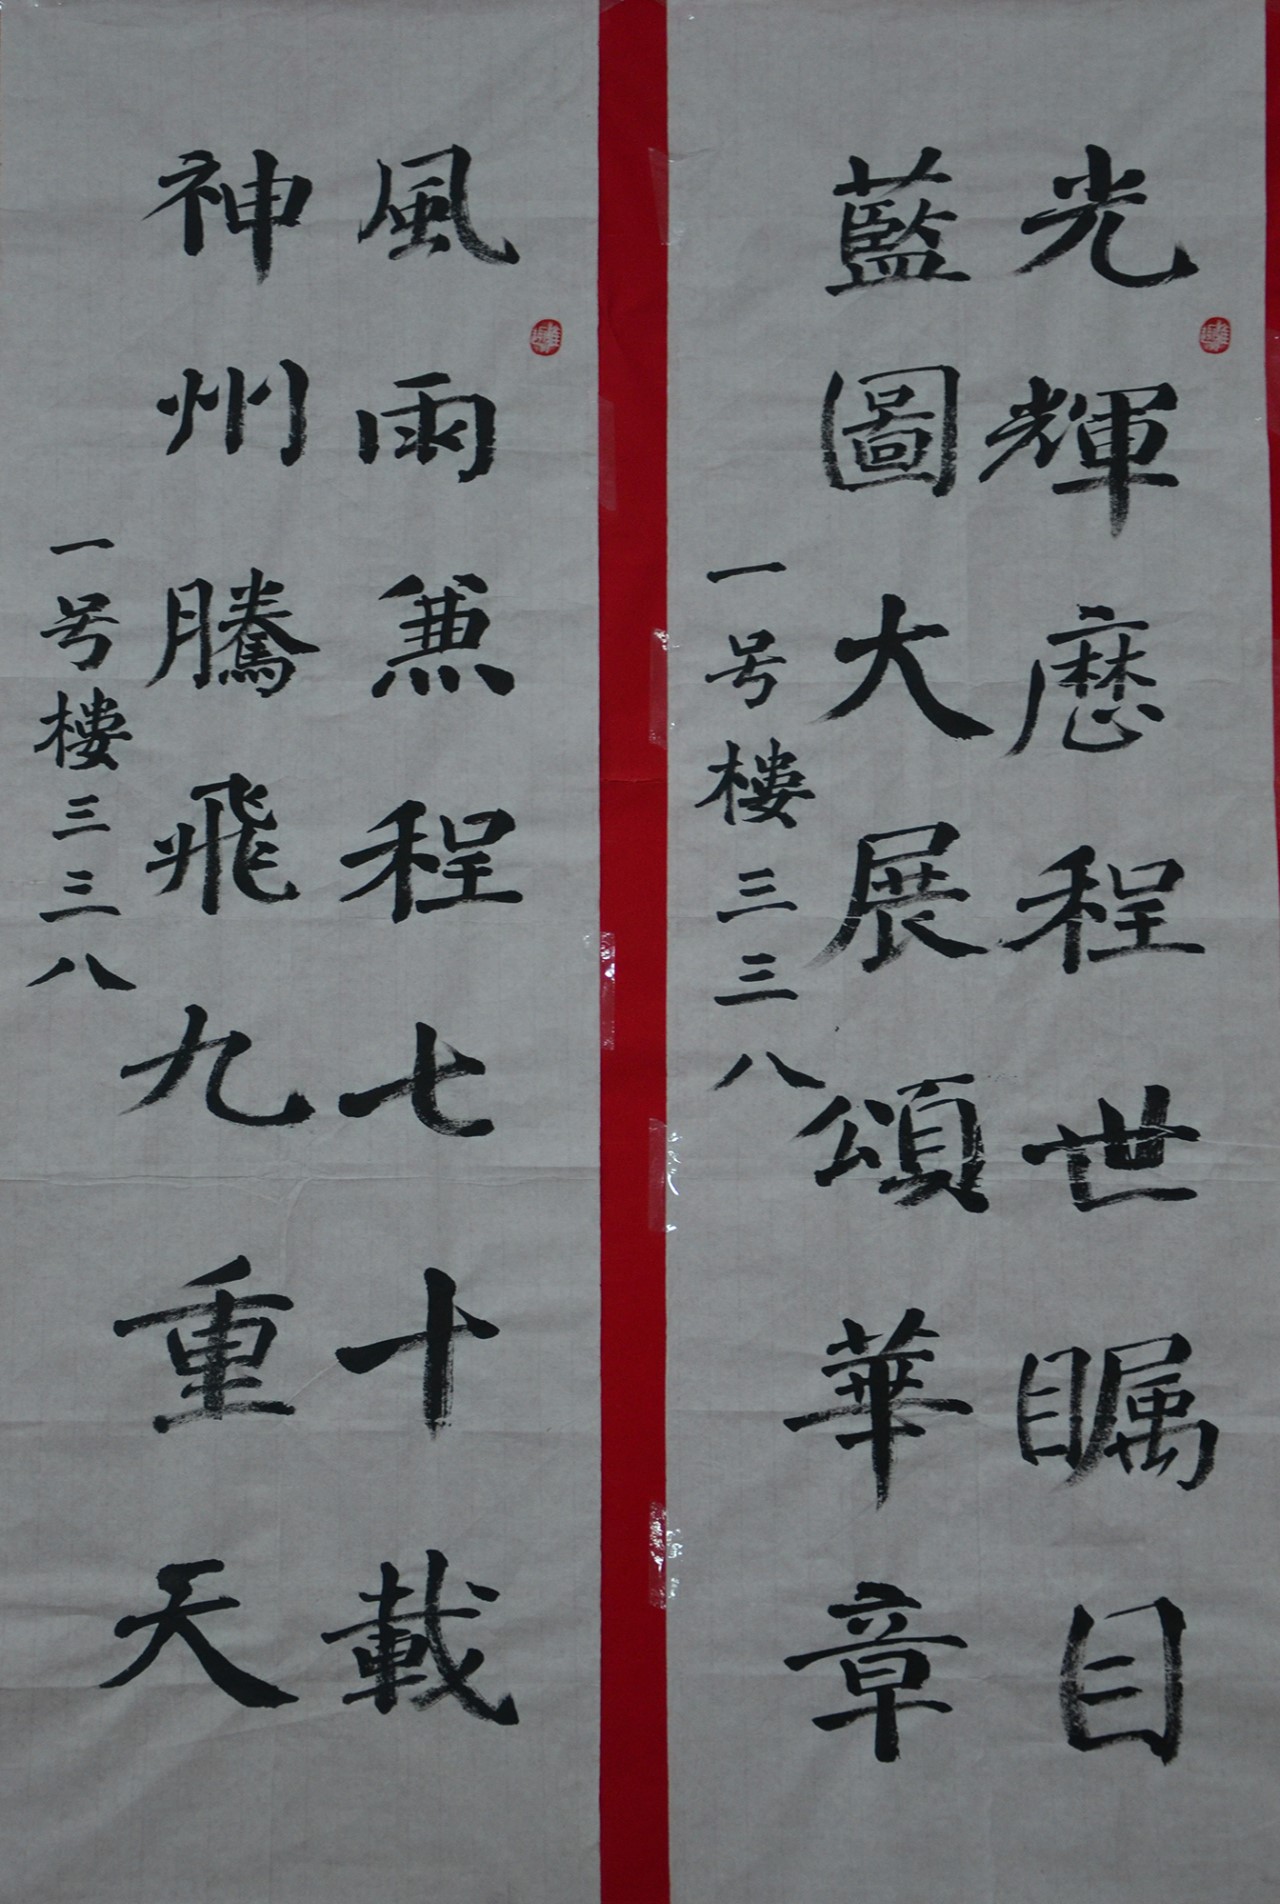 光輝歷程世瞩目
藍圖大展頌華章
一号樓三三八
風雨兼程七十載
神州騰飛九重天
一号樓三三八